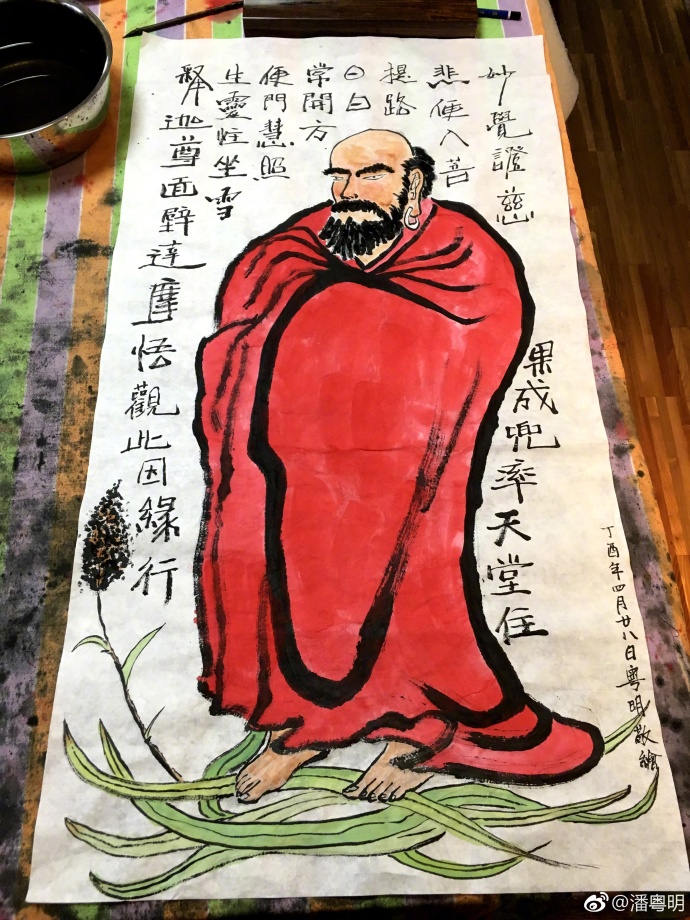 妙覺證慈
悲便入菩
提路
日日
常開方
便門慧照
生靈坐雪
釋迦尊面壁達摩悟觀此因緣行
果成兜率天堂住
丁酉年四月廿八日粵明敬繪
@潘粤明